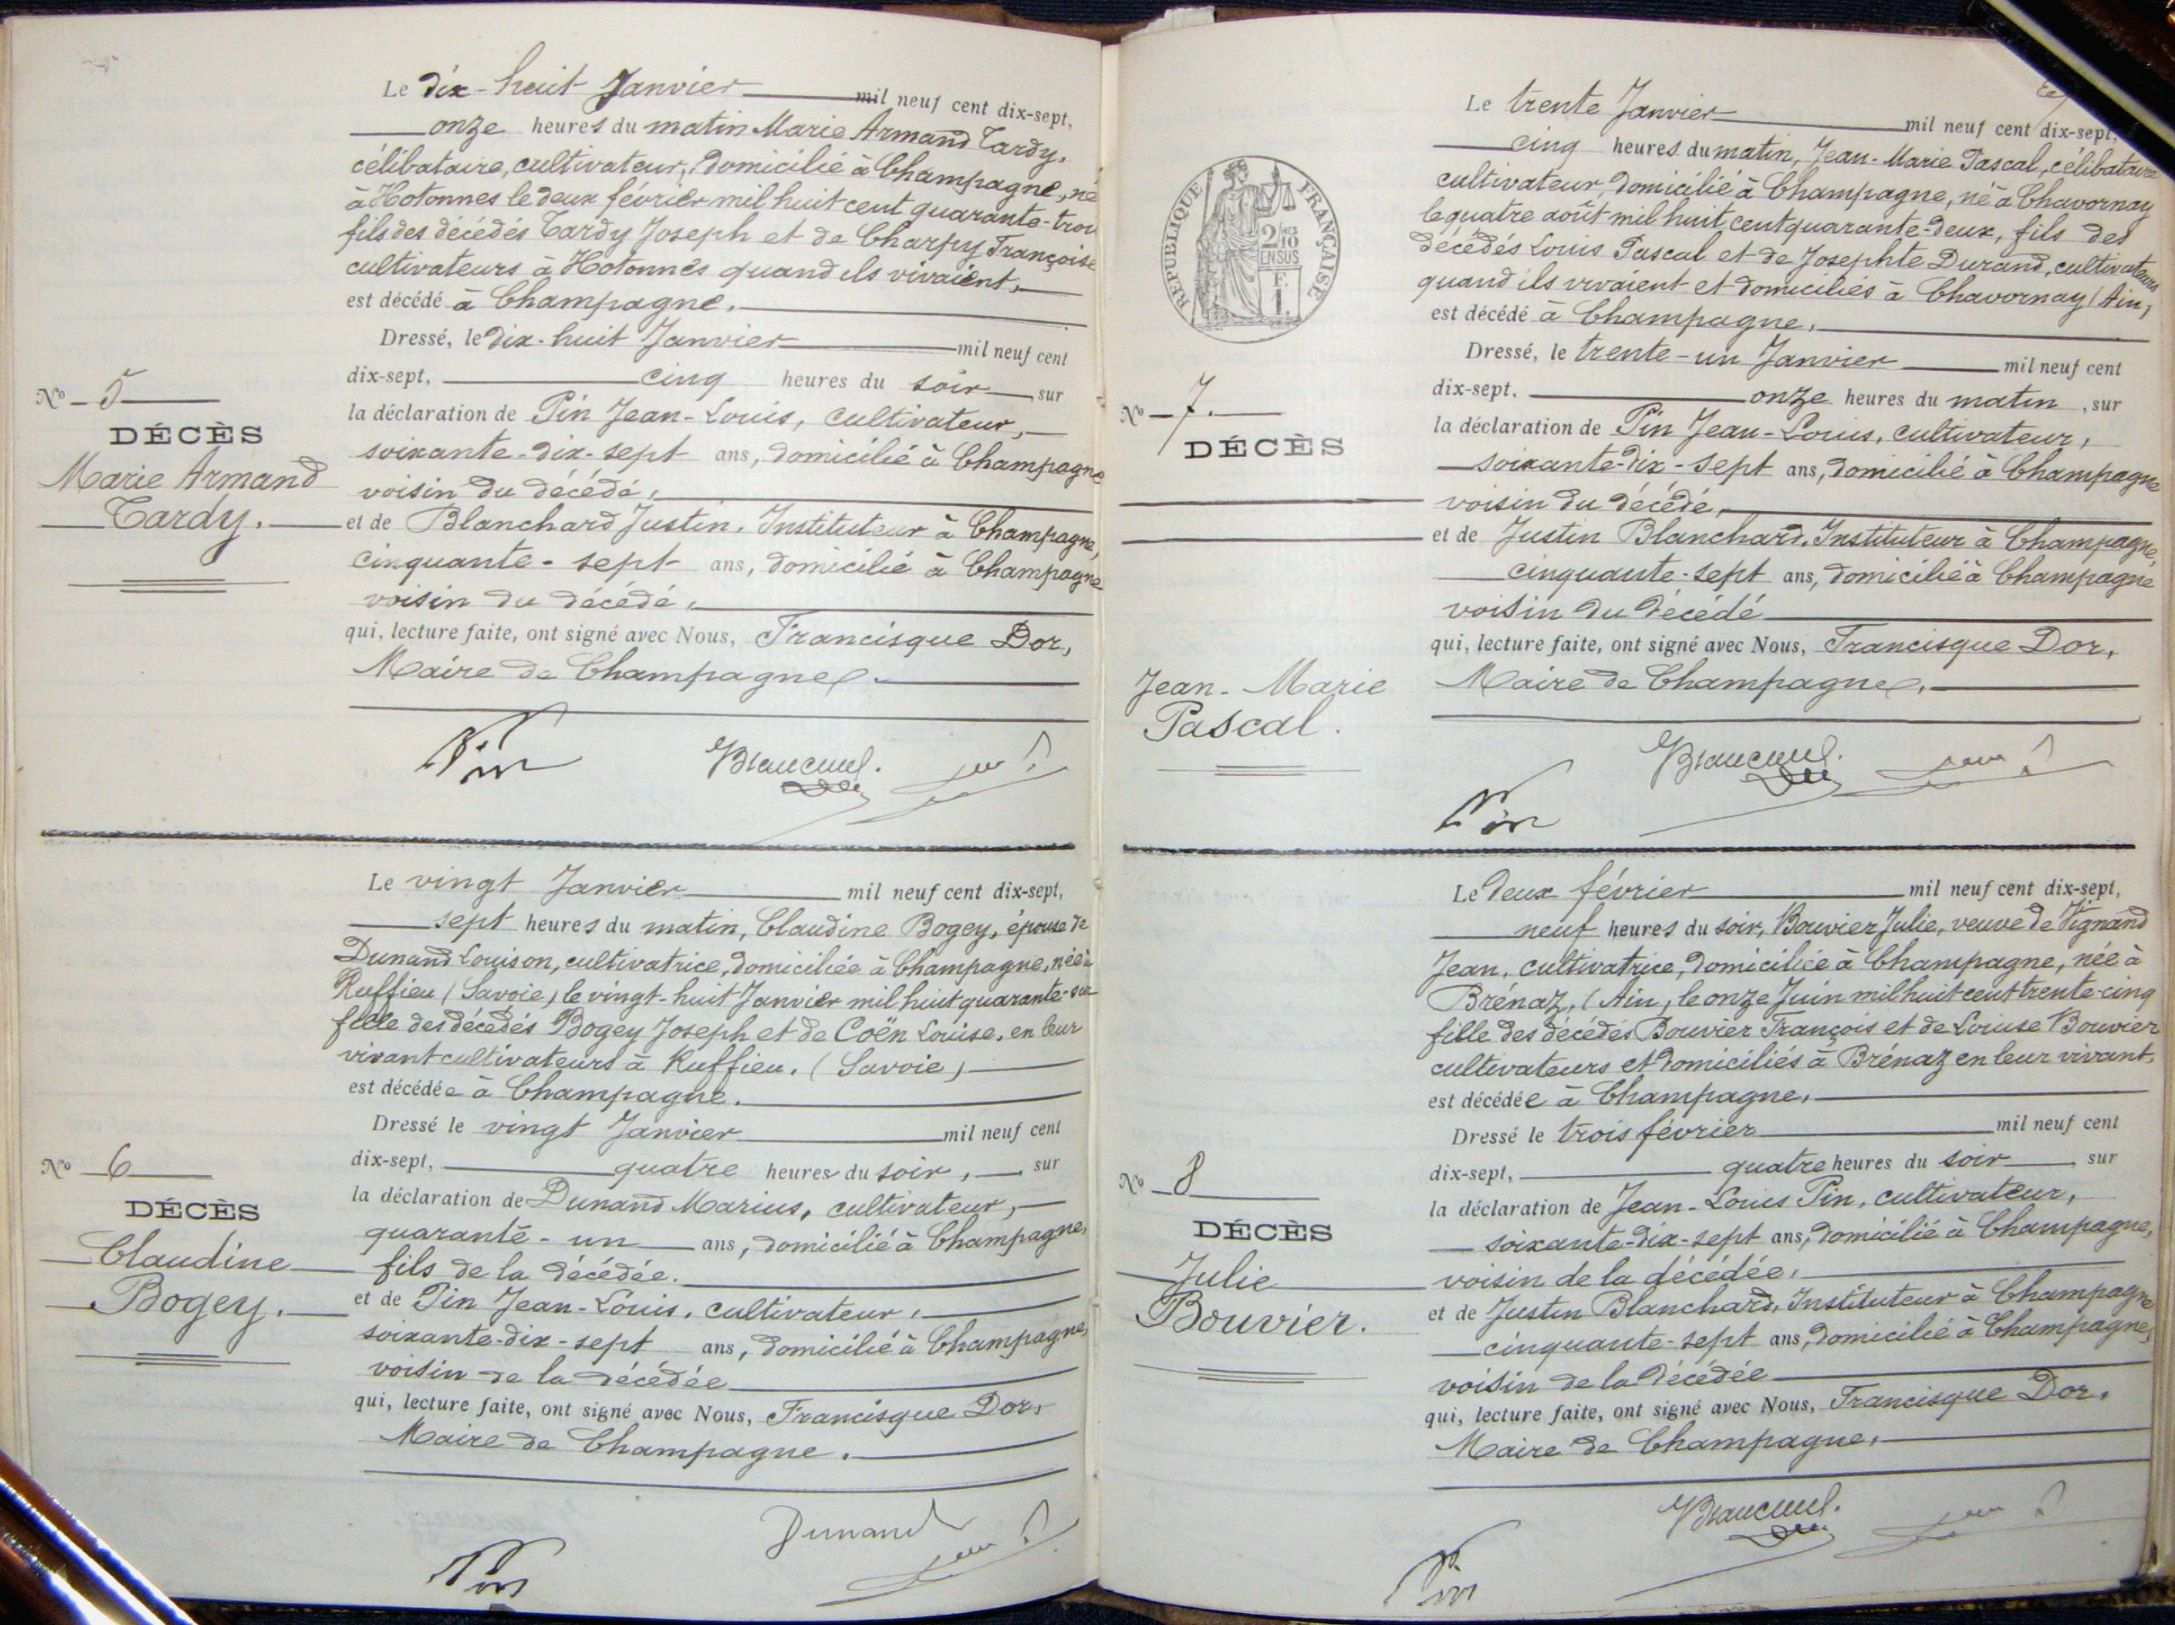 Le dix-huit Janvier mil neuf cent dix-sept,
onze heures du matin Marie Armand Tardy,
célibataire, cultivateur, domicilié à Champagne, né
à Hotonnes le deux février mil huit cent quarante-trois
fils des décédés Tardy Joseph et de Charpy Françoise
cultivateurs à Hotonnes quand ils vivaient,
est décédé à Champagne.
Dressé, le dix-huit Janvier mil neuf cent
dix-sept, cinq heures du soir, sur
la déclaration de Pin Jean-Louis, cultivateur,
soixante-dix-sept ans, domicilié à Champagne
voisin du décédé,
et de Blanchard Justin, Instituteur à Champagne,
cinquante-sept ans, domicilié à Champagne
voisin du décédé,
qui, lecture faite, ont signé avec Nous, Francisque Dor,
Maire de Champagne.
No 5
DÉCÈS
Marie Armand
Tardy.
Pin
Le vingt Janvier mil neuf cent dix-sept,
sept heures du matin, Claudine Bogey, épouse de
Dunand Louison, cultivatrice, domiciliée à Champagne, née à
Ruffieu (Savoie) le vingt-huit Janvier mil huit quarante-six
fille des décédés Bogey Joseph et de Coën Louise, en leur
vivant cultivateurs à Ruffieu. (Savoie)
est décédée à Champagne.
Dressé le vingt Janvier mil neuf cent
dix-sept, quatre heures du soir, sur
la déclaration de Dunand Marius, cultivateur,
quarante-un ans, domicilié à Champagne,
fils de la décédée.
et de Pin Jean-Louis, cultivateur,
soixante-dix-sept ans, domicilié à Champagne,
voisin de la décédée
qui, lecture faite, ont signé avec Nous, Francisque Dor,
Maire de Champagne.
No 6
DÉCÈS
Claudine
Bogey.
Dunand
Pin
Le trente Janvier mil neuf cent dix-sept,
cinq heures du matin, Jean-Marie Pascal, célibataire
cultivateur domicilié à Champagne, né à Chavornay
le quatre août mil huit cent quarante-deux, fils des
décédés Louis Pascal et de Josephte Durand, cultivateurs
quand ils vivaient et domiciliés à Chavornay (Ain)
est décédé à Champagne,
Dressé, le trente-un Janvier mil neuf cent
dix-sept. onze heures du matin, sur
la déclaration de Pin Jean-Louis, cultivateur,
soixante-dix-sept ans, domicilié à Champagne
voisin du décédé,
et de Justin Blanchard, Instituteur à Champagne,
cinquante-sept ans, domicilié à Champagne
voisin du décédé
qui, lecture faite, ont signé avec Nous, Francisque Dor,
Maire de Champagne.
RÉPUBLIQUE FRANÇAISE
2/10
EN SUS
F.
1.
No 7.
DÉCÈS
Jean-Marie
Pascal.
Pin
Le deux février mil neuf cent dix-sept,
neuf heures du soir, Bouvier Julie, veuve de Vignand
Jean, cultivatrice, domiciliée à Champagne, née à
Brénaz, (Ain) le onze Juin mil huit cent trente-cinq
fille des décédés Bouvier François et de Louise Bouvier
cultivateurs et domiciliés à Brénaz en leur vivant,
est décédée à Champagne,
Dressé le trois février mil neuf cent
dix-sept, quatre heures du soir sur
la déclaration de Jean-Louis Pin, cultivateur,
soixante-dix-sept ans, domicilié à Champagne,
voisin de la décédée,
et de Justin Blanchard, Instituteur à Champagne
cinquante-sept ans, domicilié à Champagne,
voisin de la décédée
qui, lecture faite, ont signé avec Nous, Francisque Dor,
Maire de Champagne,
No 8
DÉCÈS
Julie
Bouvier.
Pin